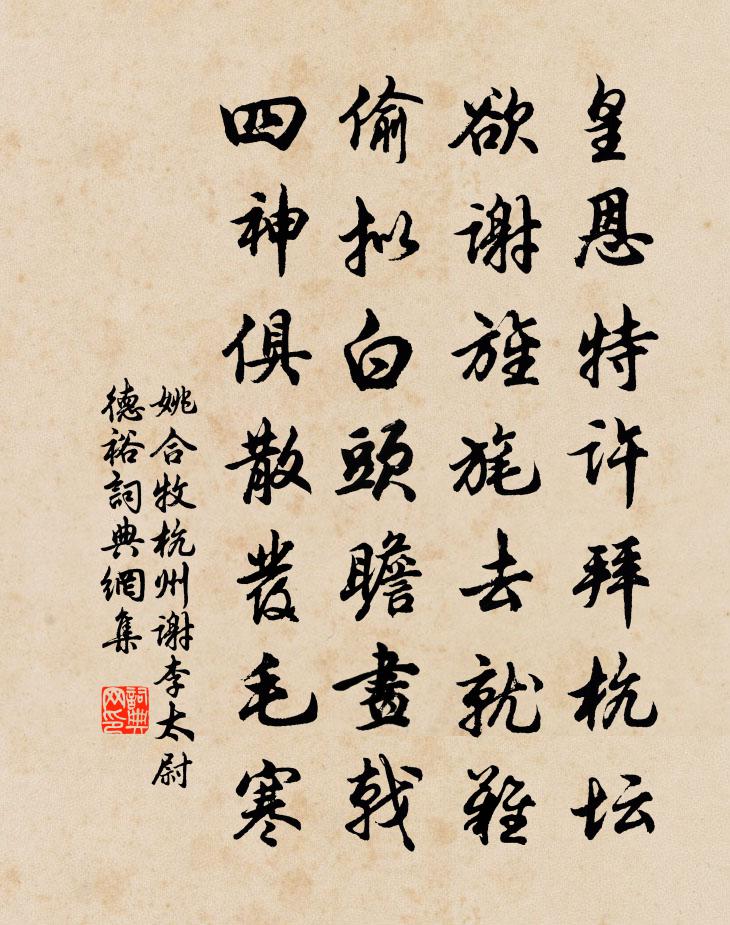 皇恩特许拜杭坛
欲谢旌旄去就難
偷拟白頭瞻畫戟
四神俱散發毛寒
姚合牧杭州谢李太尉
德裕詞典網集
詞典网印